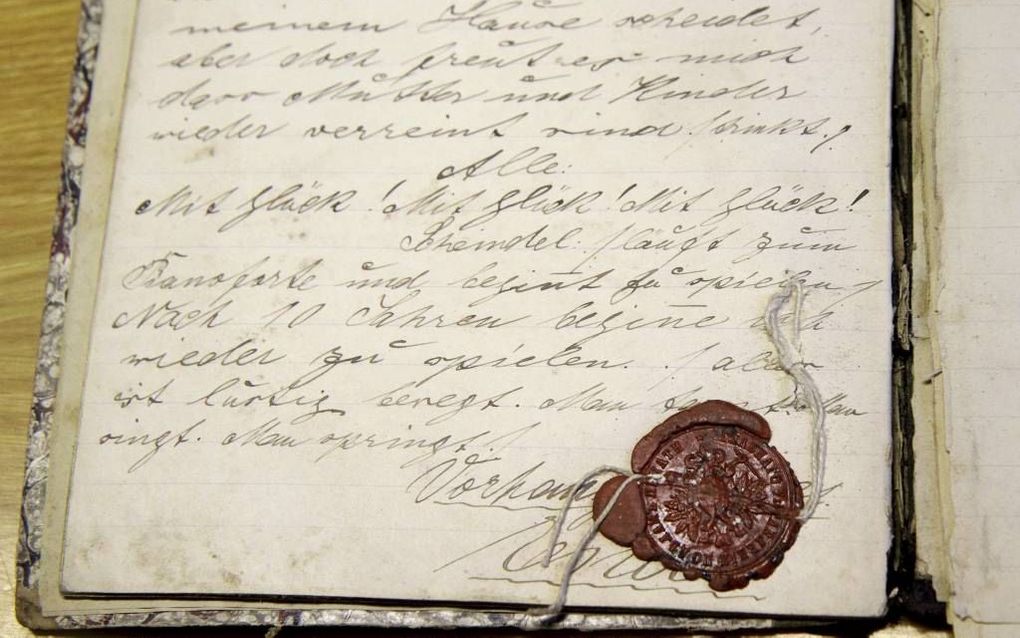 meinem Hause scheidet,
aber doch freut es mich
dass Mutter und Kinder
wieder verreint sind /trinkt./
Alle:
Mit Glück! Mit Glück! Mit Glück!
Scheindel: /läuft zum
Pianoforte und begint zu spielen/
Nach 10 Jahren begine ich
wieder zu spielen. /alles
ist lustig bewegt. Man tanzt. Man
singt. Man springt./
Vorhang